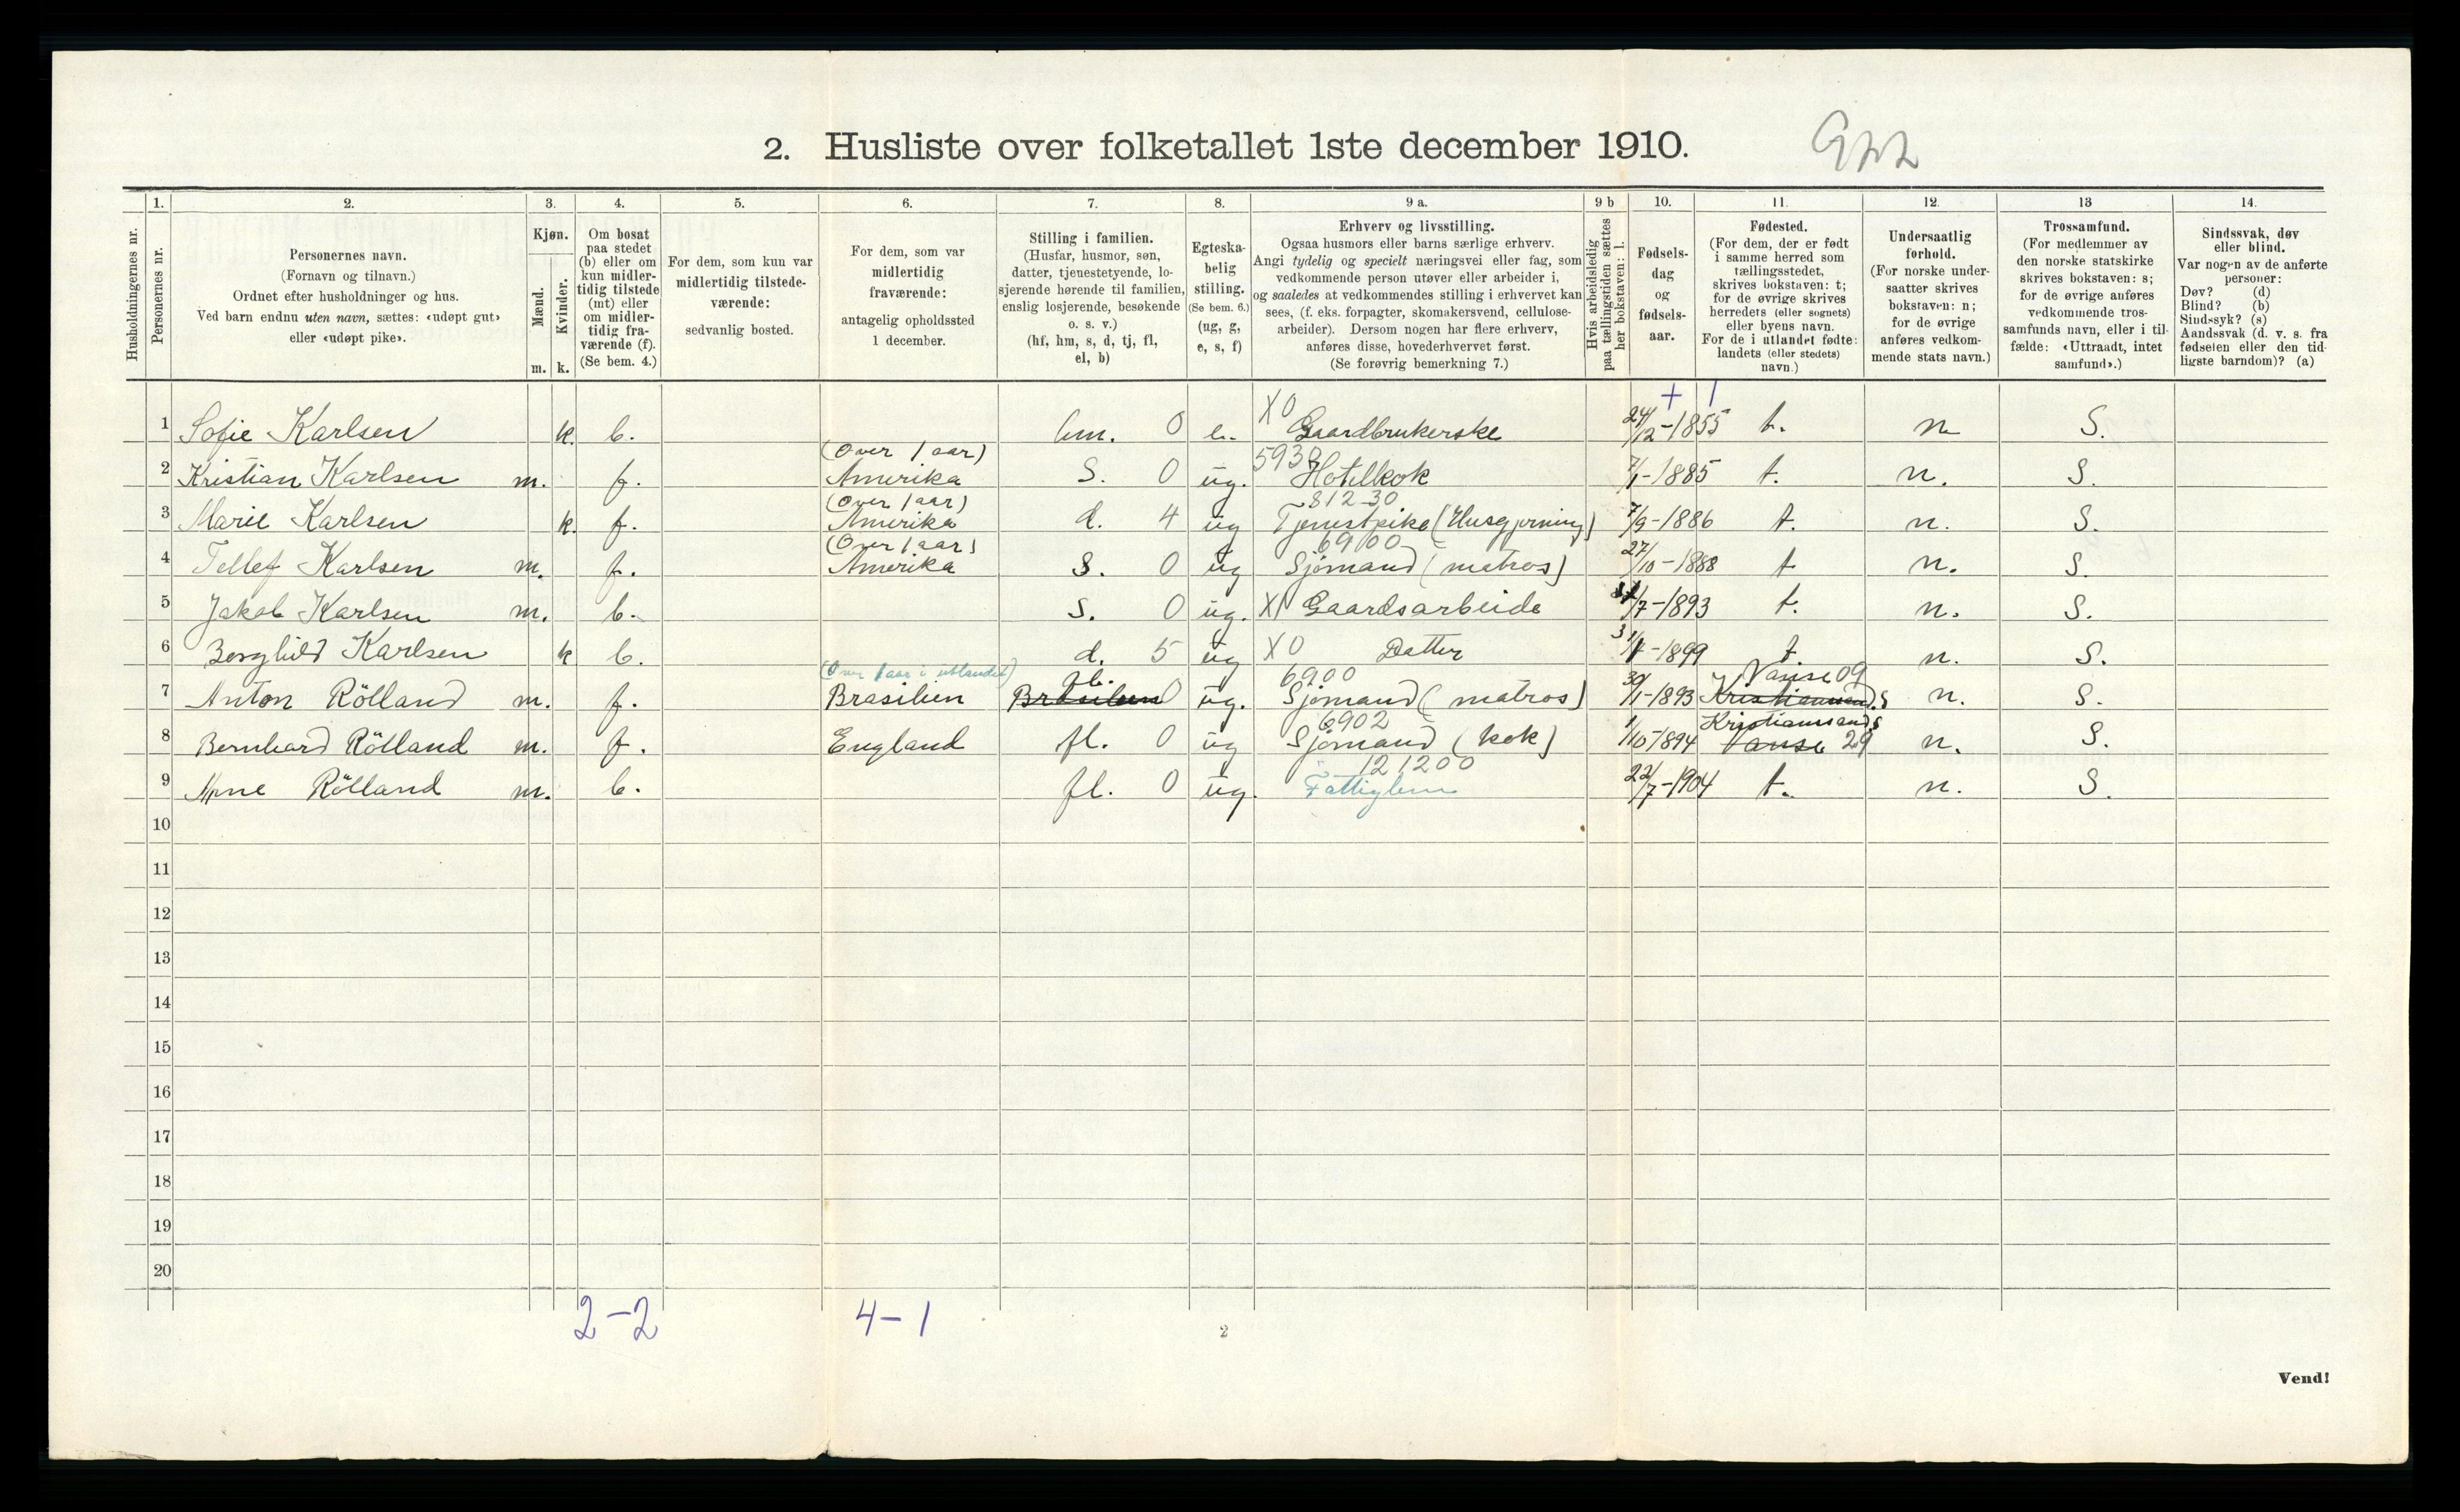 2. Husliste over folketallet 1ste december 1910.
Husholdningernes nr.
1. Personernes nr.
2. Personernes navn.
(Fornavn og tilnavn.)
Ordnet efter husholdninger og hus.
Ved barn endnu uten navn, sættes: «udøpt gut»
eller «udøpt pike».
3. Kjøn.
Mænd. Kvinder.
m. k.
4. Om bosat
paa stedet
(b) eller om
kun midler-
tidig tilstede
(mt) eller
om midler-
tidig fra-
værende (f).
(Se bem. 4.)
5. For dem, som kun var
midlertidig tilstede-
værende:
sedvanlig bosted.
6. For dem, som var
midlertidig
fraværende:
antagelig opholdssted
1 december.
7. Stilling i familien.
(Husfar, husmor, søn,
datter, tjenestetyende, lo-
sjerende hørende til familien,
enslig losjerende, besøkende
o. s. v.)
(hf, hm, s, d, tj, fl,
el, b)
8. Egteska-
belig
stilling.
(Se bem. 6.)
(ug, g,
e, s, f)
9 a. Erhverv og livsstilling.
Ogsaa husmors eller barns særlige erhverv.
Angi tydelig og specielt næringsvei eller fag, som
vedkommende person utøver eller arbeider i,
og saaledes at vedkommendes stilling i erhvervet kan
sees, (f. eks. forpagter, skomakersvend, cellulose-
arbeider). Dersom nogen har flere erhverv,
anføres disse, hovederhvervet først.
(Se forøvrig bemerkning 7.)
9 b Hvis arbeidsledig
paa tællingstiden sættes
her bokstaven: l.
10. Fødsels-
dag
og
fødsels-
aar.
11. Fødested.
(For dem, der er født
i samme herred som
tællingsstedet,
skrives bokstaven: t;
for de øvrige skrives
herredets (eller sognets)
eller byens navn.
For de i utlandet fødte:
landets (eller stedets)
navn.)
12. Undersaatlig
forhold.
(For norske under-
saatter skrives
bokstaven: n;
for de øvrige
anføres vedkom-
mende stats navn.)
13 Trossamfund.
(For medlemmer av
den norske statskirke
skrives bokstaven: s;
for de øvrige anføres
vedkommende tros-
samfunds navn, eller i til-
fælde: «Uttraadt, intet
samfund».)
14. Sindssvak, døv
eller blind.
Var nogen av de anførte
personer:
Døv? (d)
Blind? (b)
Sindssyk? (s)
Aandssvak (d. v. s. fra
fødselen eller den tid-
ligste barndom)? (a)
+ 1
1 Sofie Karlsen k. b. hm. 0 e. X0 Gaardbrukerske 24/12-1855 t. n S.
(Over 1 aar)
2 Kristian Karlsen m. f. Amerika S. 0 ug. Hotelkok 7/1-1885 t. n. S.
(Over 1 aar) 812 30
3 Marie Karlsen k. f. Amerika d. 4 ug Tjenestpike (Husgjerning) 7/9-1886 t. n. S.
(Over 1 aar) 6900
4 Tellef Karlsen m. f. Amerika S. 0 ug Sjømand (matros) 27/10-1888 t n. S.
5 Jakob Karlsen m. b. S. 0 ug. X1 Gaardsarbeide /7-1893 t. n. S.
6 Borghild Karlsen k b. d. 5 ug X0 Datter -1899 t. n. S.
(Over 1 aar i utlandet) fl. 6900 Vanse 09
7 Anton Rölland m. f. Brasilien Brasilien 0 ug. Sjømand (matros) 30/1-1893 Kristianssand.S n. S.
6902 Kristianssand S
8 Bernhard Rölland m. f. England fl. 0 ug Sjømand (kok) 1/10-1894 Vanse 29 n. S.
121200
9 Arne Rölland m. b. fl. 0 ug. Fattiglem 22/7-1904 t. n. S.
10
11
12
13
14
15
16
17
18
19
20
2-2 4-1
2
Vend!